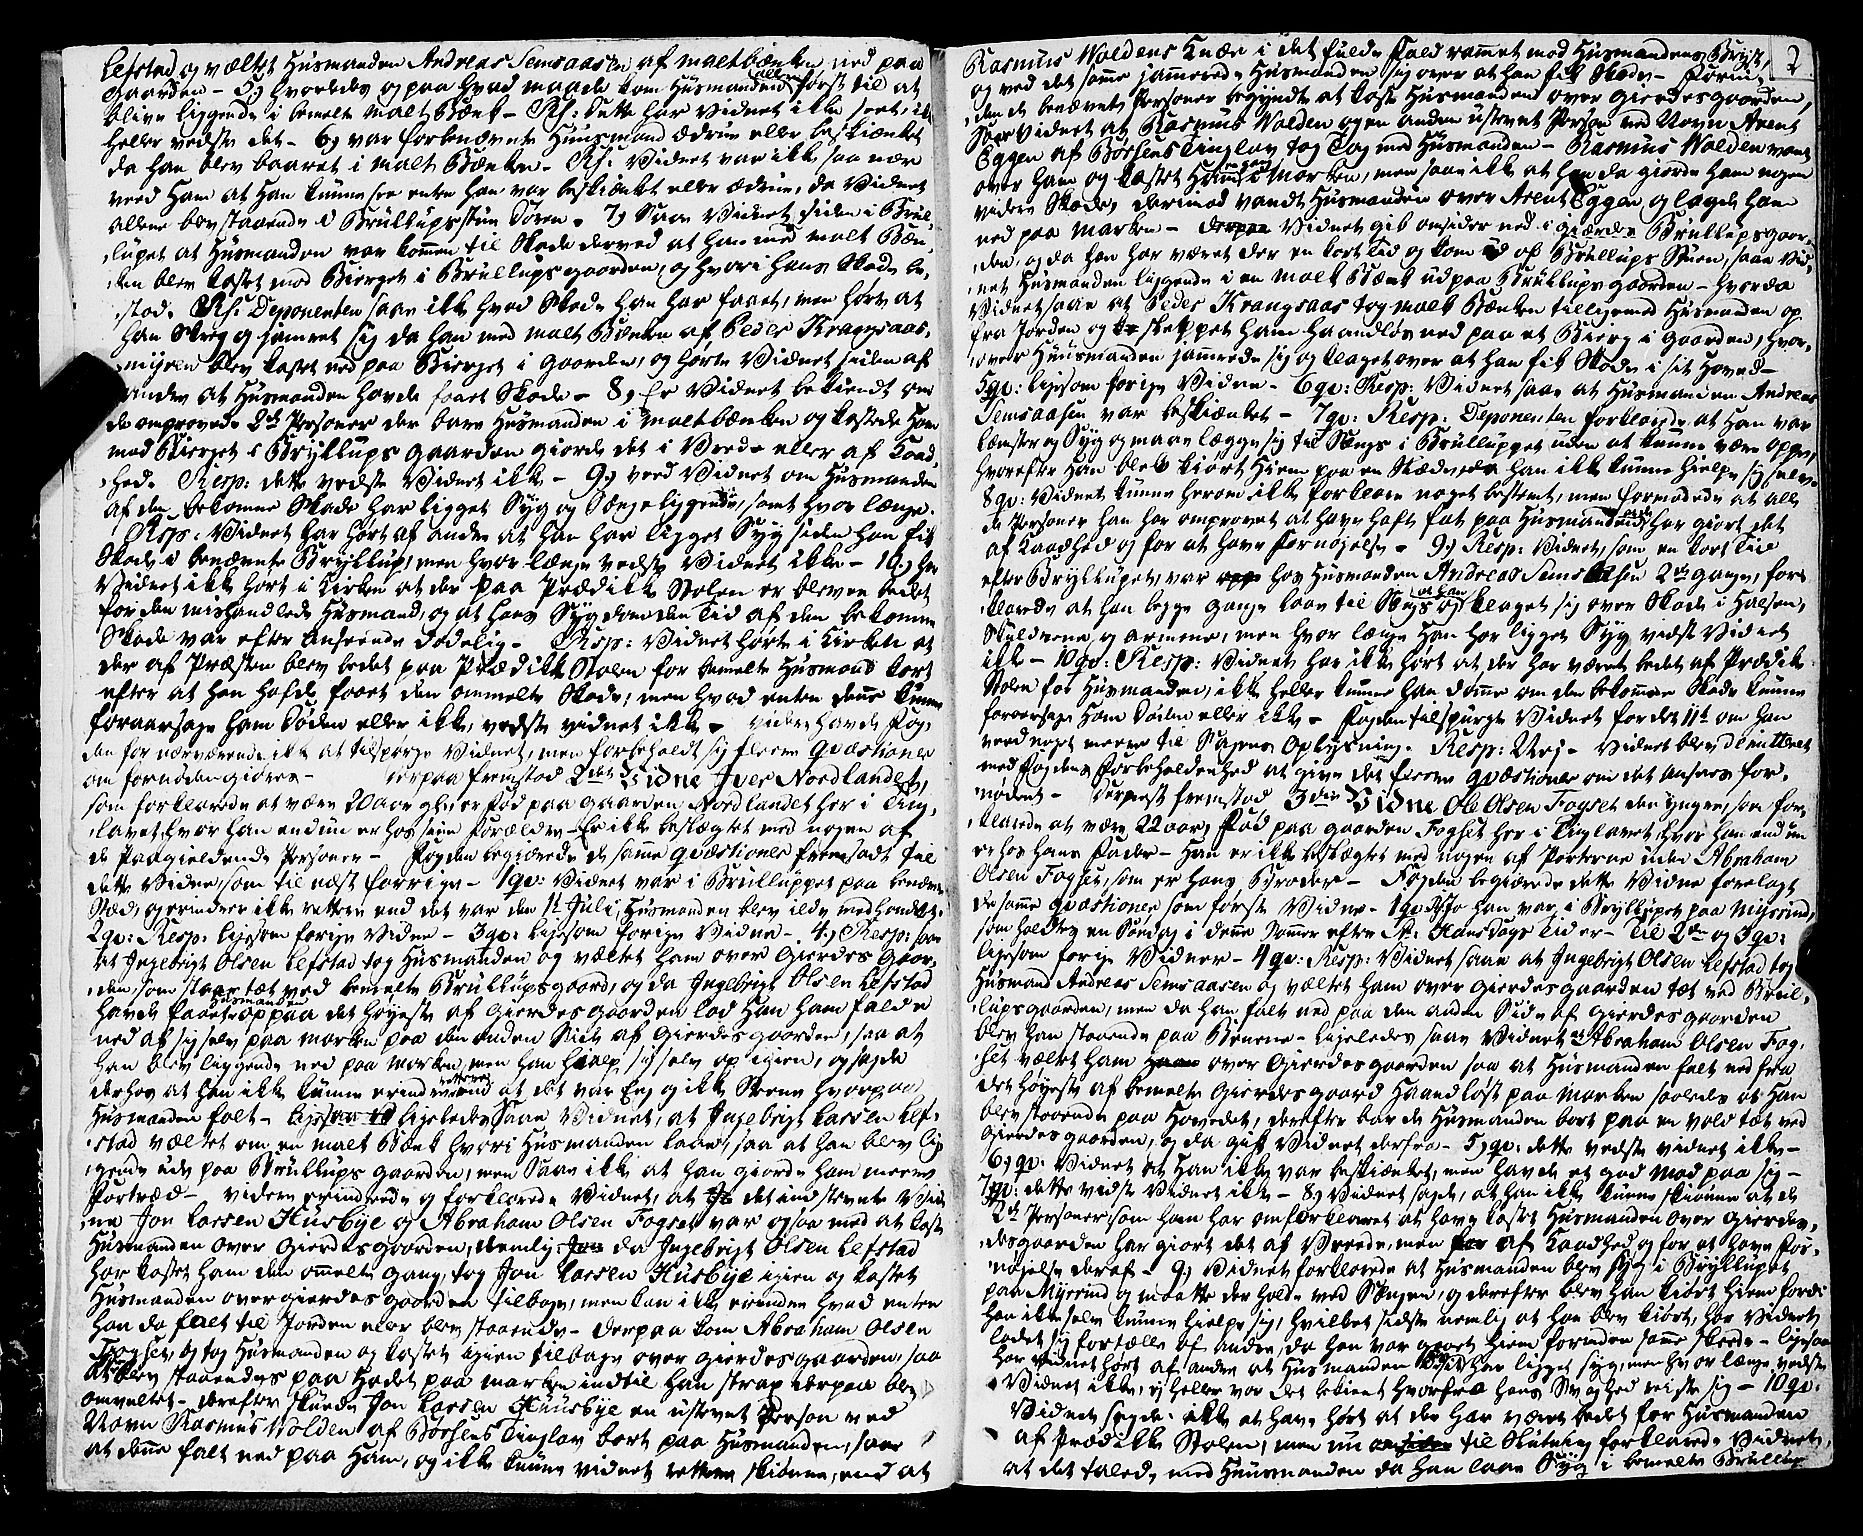 Lefstad og væltet Huusmanden Andreas Semsaasen af maltbænken ned paa
Gaarden – 5) hvorledes og paa hvad maade kom Huusmanden allene først til at
blive liggende i bemelte Malt Bænk – Rs: dette har Vidnet ikke seet, ei
heller vedste det – 6) var forbenævnte Huusmand ædrue eller beskiænket
da han blev baaret i Malt Bænken – Rs: Vidnet var ikke saa nær
ved Ham at Han kunne see enten han var beskiænket eller ædrue, da Vidnet
allene blev staaende i Brüllupsstue Døren – 7) Saae Vidnet siden i Brül-
lupet at Huusmanden var kommen til Skade derved at han med Malt Bæn-
ken blev kastet mod Bierget i Brüllupsgaarden, og hvori hans Skade be-
stod. Rs: Deponenten saae ikke hvad Skade han har faaet, men hørte at
han Skreg og jamret sig da han med Malt Bænken af Peder Krangsaas-
myren blev kastet ned paa Bierget i Gaarden, og hørte Vidnet siden af
andre at Huusmanden havde faaet Skade – 8) Er Vidnet bekiendt om
de omprovede 2de Personer der bare Huusmanden i maltbænken og kastede Ham
mod Bierget i Bryllups gaarden giorde det i Vrede eller af Kaad-
hed. Resp: dette vedste Vidnet ikke – 9) veed Vidnet om Huusmanden
af den bekomne Skade har ligget Syg og Sengeliggende, samt hvor længe.
Resp: Vidnet har hørt af andre at han har ligget Syg siden han fik
Skade i benævnte Bryllup, men hvor længe vedste Vidnet ikke – 10) har
Vidnet ikke hørt i Kirken at der paa Prædike Stolen er bleven bedet
for den mishandlede Huusmand, og at hans Sygdom den Tid af den bekomne
Skade var efter Anseende dødelig – Resp: Vidnet hørte i Kirken at
der af Præsten blev bedet paa Prædike Stolen for bemelte Huusmand kort
efter at han hafde faaet den ommelte Skade, men hvad enten denne kunne
foraarsage ham Døden eller ikke, vedste vidnet ikke – videre havde Fog-
den for nærværende ikke at tilspørge Vidnet, men forbeholdt sig fleere Qvæstioner
om fornøden giøres – derpaa fremstod 2det Vidne Iver Nordlandet,
som forklarede at være 20 aar gl: er Fød paa gaarden Nordlandet her i Ting-
lavet, hvor han endnu er hos sine Forældre – Er ikke beslægtet med nogen af
de Paagieldende Personer – Fogden begiærede de samme Qvæstioner fremsadt til
dette Vidne, som til næst forrige – 1qv: Vidnet var i Brülluppet paa benævnte
Stæd, og erindrer ikke rettere end det var den 1t Julij Huusmanden blev ilde medhandlet –
2qv: Resp: ligesom forige Vidne – 3qv: ligesom forige Vidne – 4) Resp: saae
at Ingebrigt Olsen Lefstad tog Huusmanden og væltet ham over Gierdes Gaar-
den, som staar tæt ved bemelte Brüllupsgaard, og da Ingebrigt Olsen Lefstad
havde faaet Huusmanden oppaa det høyeste af Gierdesgaarden lod Han ham falde
ned af sig selv paa marken paa den anden Side af Gierdesgaarden, saa at
han blev liggende ned paa Marken, men han hialp sig selv op igien, og sagde
derhos at han ikke kunne erindre rettere end at det var Eng og ikke Steene hvorpaa
Huusmanden falt – ligeledes Saae Vidnet, at Ingebrigt Larsen Lef-
stad væltet om en malt Bænk hvori Huusmanden laae, saa at han blev lig-
gende ude paa Brüllups gaarden, men Saae ikke at han giorde ham meere
Fortræd – videre erindrede og forklarede Vidnet, at det indstevnte Vid-
ne Jon Larsen Huusbye og Abraham Olsen Fogset var ogsaa med at kaste
Huusmanden over Gierdesgaarden, Nemlig da Ingebrigt Olsen Lefstad
har kastet ham den ommelte gang, tog Jon Larsen Huusbye igien og kastet
Huusmanden over gierdesgaarden tilbage, men kan ikke erindre hvad enten
han da falt til Jorden eller blev staaende – derpaa kom Abraham Olsen
Fogset, og tog Huusmanden og kastet igien tilbage over gierdesgaarden, saa
at blev staaendes paa Hodet paa Marken indtil han strax derpaa blev
omveltet – derefter skuede Jon Larsen Huusbye en ustevnt Person ved
Navn Rasmus Wolden af Børsens Tinglav bort paa Huusmanden, saa
at denne falt ned paa Ham, og ikke kunne vidnet rettere skiønne, end at
2
Rasmus Woldens Knæe i det fulde Fald rammet mod Huusmandens Bryst,
og ved det samme jamrede Huusmanden sig over at han fik Skade – Foren-
den de benævnte Personer begyndte at kaste Huusmanden over gierdesgaarden,
Saae Vidnet at Rasmus Wolden og en anden ustevnt Person ved Navn Arent
Eggen af Børsens Tinglav tog Tag med Huusmanden – Rasmus Wolden vandt
over ham og kastet Ham engang i Marken, men saae ikke at han da giorde ham nogen
videre Skade, derimod vandt Huusmanden over Arent Eggen og lagde ham
ned paa marken – Vidnet gik omsider ned i Brüllupsgaar-
den, og da han har været der en kort Tid og kom ud af Brüllups Stuen, saae Vid-
net Huusmanden liggende i en Malt Bænk ud paa Brüllupsgaarden – hvorda
Vidnet saae at Peder Krangsaas tog Malt Bænken tilligemed Huusmanden op
fra Jorden og skeppet ham haandløs ned paa et Bierg i Gaarden, hvor-
over Huusmanden jamrede sig og klaget over at han fik Skade i sit Hoved –
5qv: ligesom forige Vidne – 6qv: Resp: Vidnet saae at Huusmanden Andreas
Semsaasen var beskiænket – 7qv: Resp: Deponenten forklarede at Han var
lemster og Syg og maae lægge sig til Sengs i Brülluppet uden at kunne være oppe,
hvorefter Ham blev kiørt Hiem paa en Slæde da han ikke kunne hielpe sig selv –
8qv: Vidnet kunne herom ikke forklare noget bestemt, men formodede at alle
de Personer han har omprovet at have haft fat paa Huusmanden har giort det
af Kaadhed og for at have Fornøyelse – 9) Resp: Vidnet, som en kort Tid
efter Bryllupet, var hos Huusmanden Andreas Semsaasen 2de gange, for-
klarede at han begge gange laae til Sengs at han klaget sig over Skade i Halsen,
Skuldrene og armene, men hvor længe Han har ligget Syg vidste Vidnet
ikke – 10qv: Resp: Vidnet har ikke hørt at der har været bedet af Prædike
Stolen for Huusmanden, ikke heller kunne han dømme om den bekomne Skade kunne
foraarsage Ham Døden eller ikke – Fogden tilspurgte Vidnet for det 11te om han
veed noget meere til Sagens Oplysning. Resp: Ney – Vidnet blev dimitteret
med Fogdens forbeholdenhed at give det fleere Qvæstioner om det ansees for-
nødent – dernest fremstod 3die Vidne Ole Olsen Fogset den yngere, som for-
klarede at være 22 aar, Fød paa gaarden Fogset her i Tinglavet, hvor Han endnu
er hos hans Fader – Han er ikke beslægtet med nogen af Parterne uden Abraham
Olsen Fogset, som er hans Broder – Fogden begiærede dette Vidne forelagt
de samme Qvæstioner som første Vidne – 1qv: Jo han var i Bryllupet paa Myrsund,
som holdtes en Søndag i denne Sommer efter St: Hansdags Tider – til 2den og 3qv:
ligesom forige Vidner – 4qv: Resp: Vidnet saae at Ingebrigt Olsen Lefstad tog
Huusmand Andreas Semsaasen og væltet ham over Gierdesgaarden tæt ved Brül-
lupsgaarden, men da han falt ned paa den anden Side af Gierdesgaarden
blev han staaende paa Benene – ligeledes saae Vidnet at Abraham Olsen Fog-
set væltet ham over Gierdesgaarden saa at Huusmanden falt ned fra
det høyeste af bemelte Gierdesgaard Haandløst paa marken saaledes at Han
blev staaende paa Hovedet, derefter bar de Huusmanden bort paa en vold tæt ved
Gierdesgaarden, og da gik Vidnet derfra – 5) qv: dette vedste vidnet ikke –
6) qv: Vidnet at Han ikke var beskiænket, men havde et god Mod paa sig –
7qv: dette vedste Vidnet ikke – 8) Vidnet sagde, at han ikke kunne skiønne at de
2de Personer som han har omforklaret at have kastet Huusmanden over Gierdes-
desgaarden har giort det af Vrede, men af Kaadhed og for at have For-
nøyelse deraf – 9) Vidnet forklarede at Huusmanden blev syg i Bryllupet
paa Myrsund og maatte der holde ved Sengen, og derefter blev han kiørt hiem fordi
han ikke selv kunne hielpe sig, hvilket sidste nemlig at han blev kiørt, har Vidnet
ladet sig fortælle af andre, da han var gaaet hiem forinden samme skeede – ligesom
har Vidnet hørt af andre at Huusmanden har ligget syg, men hvor længe vedste
Vidnet ikke, ey heller var det bekient hvorfra hans Svaghed reiste sig – 10qv:
Vidnet sagde ikke at have hørt at der har været bedet for Huusmanden
af Prædike Stolen, men nu til Slutning forklarede Vidnet,
at det talede med Huusmanden da han laae Syg i bemelte Brüllup